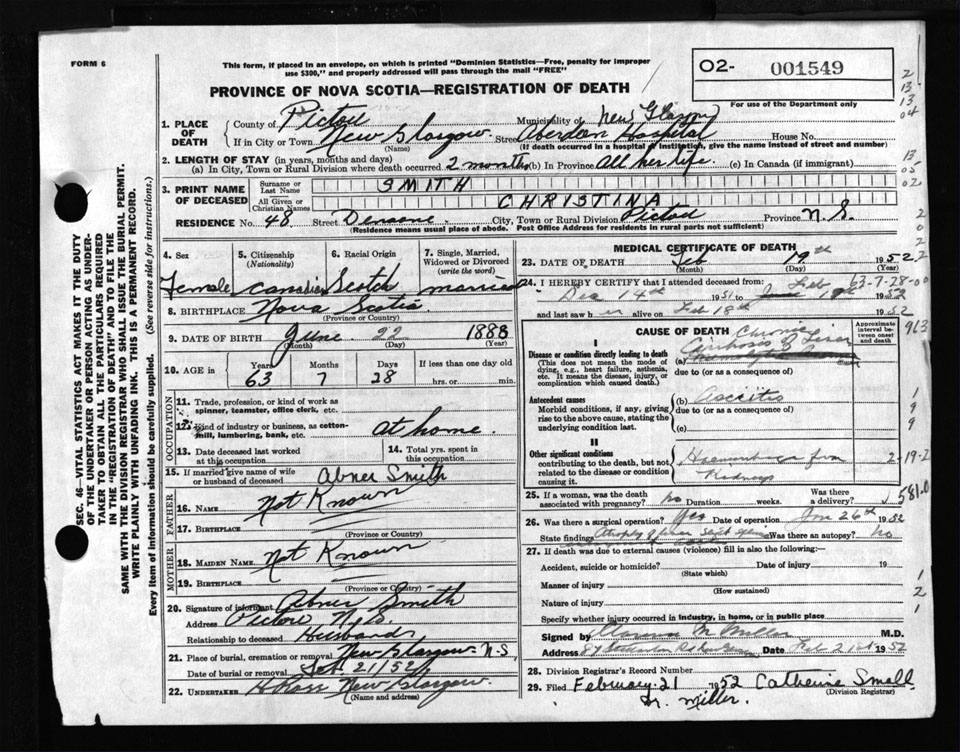 FORM 6
This form, if placed in an envelope, on which is printed "Dominion Statistics—Free, penalty for improper
use $300," and properly addressed will pass through the mail "FREE"
O2- 001549
For use of the Department only
PROVINCE OF NOVA SCOTIA—REGISTRATION OF DEATH
1. PLACE OF DEATH
County of Pictou Municipality of New Glasgow
If in City or Town New Glasgow Street Aberdeen Hospital House No.
(Name) (If death occurred in a hospital or institution, give the name instead of street and number)
2. LENGTH OF STAY (in years, months and days)
(a) In City, Town or Rural Division where death occurred 2 months (b) In Province All her life. (c) In Canada (if immigrant)
3. PRINT NAME OF DECEASED
Surname or Last Name SMITH
All Given or Christian Names CHRISTINA
RESIDENCE No. 48 Street City, Town or Rural Division Pictou Province N.S.
(Residence means usual place of abode. Post Office Address for residents in rural parts not sufficient)
4. Sex 5. Citizenship (Nationality) 6. Racial Origin 7. Single, Married, Widowed or Divorced (write the word)
Female Canadian Scotch married
8. BIRTHPLACE Nova Scotia
(Province or Country)
9. DATE OF BIRTH June 22 1888
(Month) (Day) (Year)
10. AGE in Years Months Days If less than one day old
63 7 28 hrs. or min.
OCCUPATION
11. Trade, profession or kind of work as spinner, teamster, office clerk, etc.
12. Kind of industry or business, as cotton-mill, lumbering, bank, etc. at home.
13. Date deceased last worked at this occupation
14. Total yrs. spent in this occupation
15. If married give name of wife or husband of deceased Abner Smith
FATHER
16. Name Not Known
17. Birthplace
(Province or Country)
MOTHER
18. Maiden Name Not Known
19. Birthplace
(Province or Country)
20. Signature of informant Abner Smith
Address Pictou N.S.
Relationship to deceased Husband
21. Place of burial, cremation or removal New Glasgow N-S
Date of burial or removal Feb. 21/52
22. UNDERTAKER New Glasgow.
(Name and address)
MEDICAL CERTIFICATE OF DEATH
23. DATE OF DEATH Feb 19th 1952
(Month) (Day) (Year)
24. I HEREBY CERTIFY that I attended deceased from:
Dec 14th 1951 to Feb 1952
and last saw her alive on Feb 18th 1952
CAUSE OF DEATH
Approximate interval between onset and death
I
Disease or condition directly leading to death
(This does not mean the mode of dying, e.g., heart failure, asthenia, etc. It means the disease, injury, or complication which caused death.)
(a) Chronic Cirrhosis of Liver
due to (or as a consequence of)
Antecedent causes
Morbid conditions, if any, giving rise to the above cause, stating the underlying condition last.
(b) Ascitis
due to (or as a consequence of)
(c)
II
Other significant conditions
contributing to the death, but not related to the disease or condition causing it.
Haemorrhage from Kidneys
25. If a woman, was the death associated with pregnancy? no Duration weeks. Was there a delivery?
26. Was there a surgical operation? Yes Date of operation Jan 26th 1952
State findings Atrophy of liver Was there an autopsy? no
27. If death was due to external causes (violence) fill in also the following:—
Accident, suicide or homicide? Date of injury 19
(State which)
Manner of injury
(How sustained)
Nature of injury
Specify whether injury occurred in industry, in home, or in public place
Signed by Clarence M Miller M.D.
Address Date Feb 21st 1952
28. Division Registrar's Record Number
29. Filed February 21 1952 Catherine Small
(Division Registrar)
Dr. Miller.
SEC. 46—VITAL STATISTICS ACT MAKES IT THE DUTY
OF THE UNDERTAKER OR PERSON ACTING AS UNDER-
TAKER TO OBTAIN ALL THE PARTICULARS REQUIRED
IN THE "REGISTRATION OF DEATH" AND TO FILE THE
SAME WITH THE DIVISION REGISTRAR WHO SHALL ISSUE THE BURIAL PERMIT.
WRITE PLAINLY WITH UNFADING INK. THIS IS A PERMANENT RECORD.
Every item of information should be carefully supplied. (See reverse side for instructions.)
2
13
13
04
13
05
02
2
0
2
2
63-7-28-00
963
1
9
9
2-19-2
581.0
1
2
1